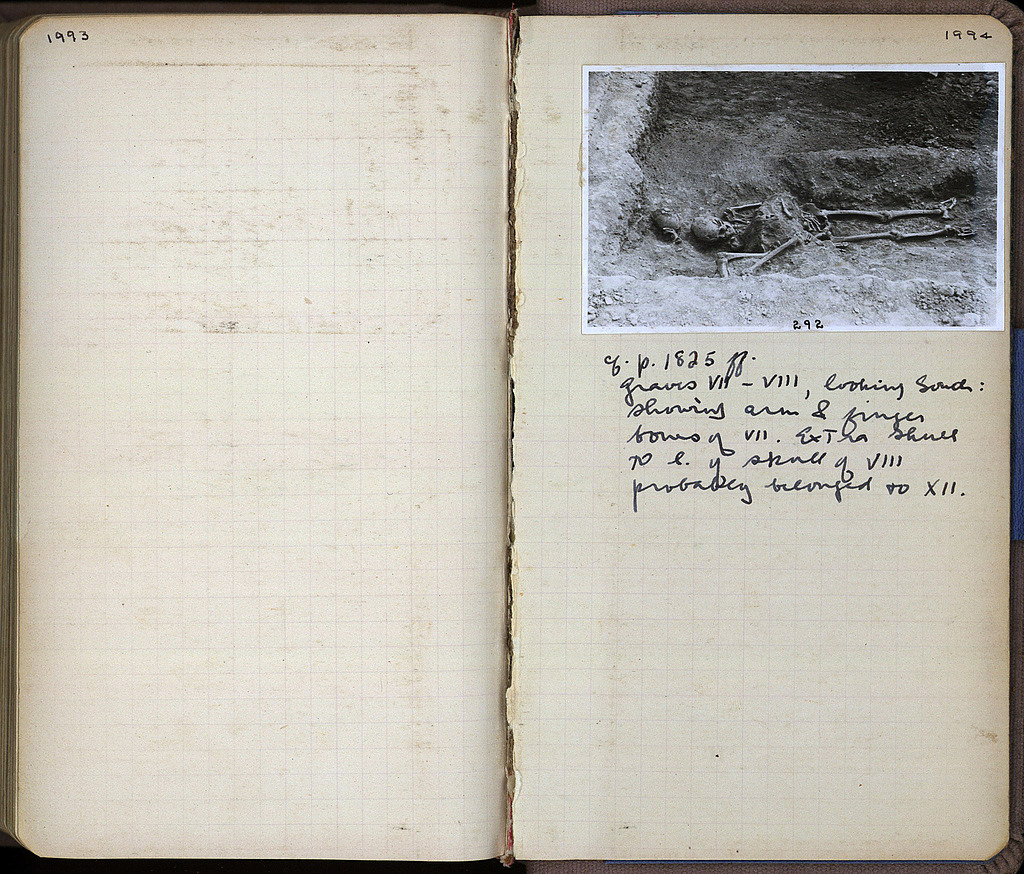 1993
1994
292
cf. p. 1825 ff.
graves VII - VIII, looking South:
showing arm & finger
bones of VII. Extra skull
to l. of skull of VIII
probably belonged to XII.